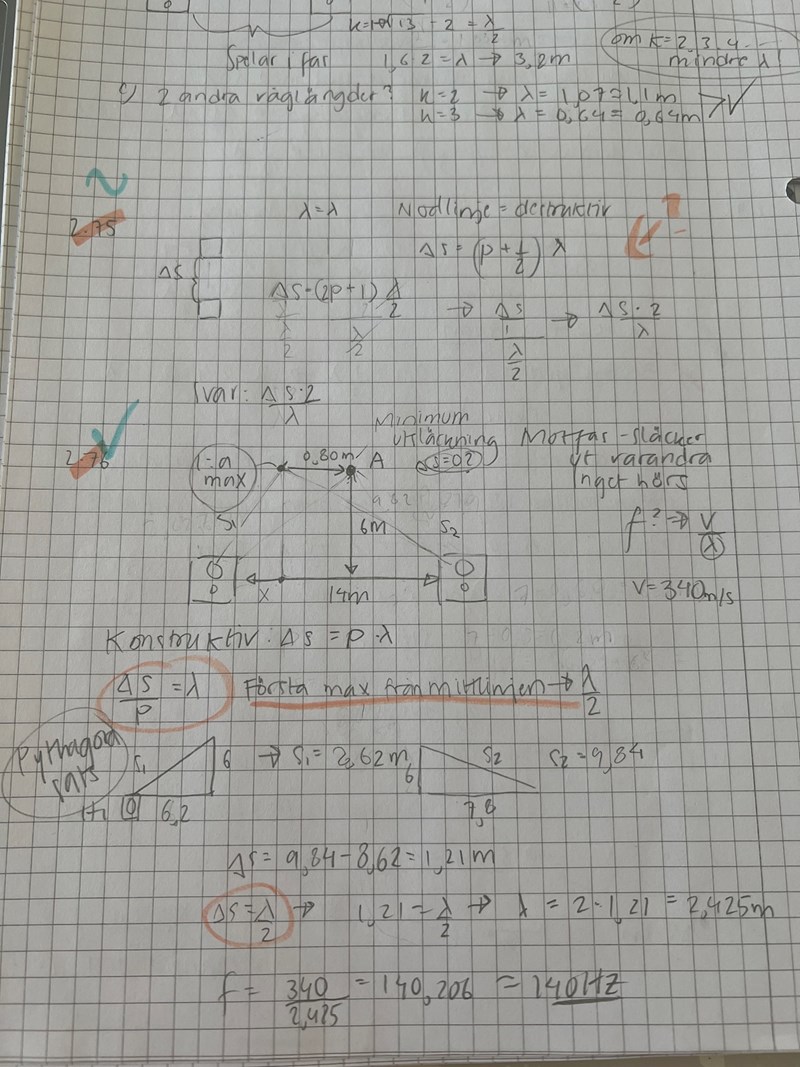 - 2 = λ/2
Spelar i fas 1,62 = λ → 3,2m
om k=2,3,4... mindre λ
c) 2 andra våglängder? k=2 → λ = 1,07 = 1,1m
k=3 → λ = 0,64 = 0,64m
2.75
λ=λ Nodlinje = destruktiv
Δs = (p + 1/2) λ
Δs
Δs = (2p+1) λ/2
λ/2 λ/2
→ Δs/1 / λ/2 → Δs·2/λ
Svar: Δs·2/λ
2.76
1:a max
0,80m A
Minimum utsläckning
s=0?
Motfas - släcker ut varandra
Inget hörs
S1 6m S2
f? → v/λ
x 14m
v=340m/s
Konstruktiv: Δs = p·λ
Δs/p = λ Första max från mittlinjen → λ/2
Pythagoras sats
S1 6 → S1 = 8,62m 6 S2 S2 = 9,84
6,2 7,8
Δs = 9,84-8,62 = 1,21m
Δs = λ/2 → 1,21 = λ/2 → λ = 2·1,21 = 2,425m
f = 340/2,425 = 140,206 = 140Hz